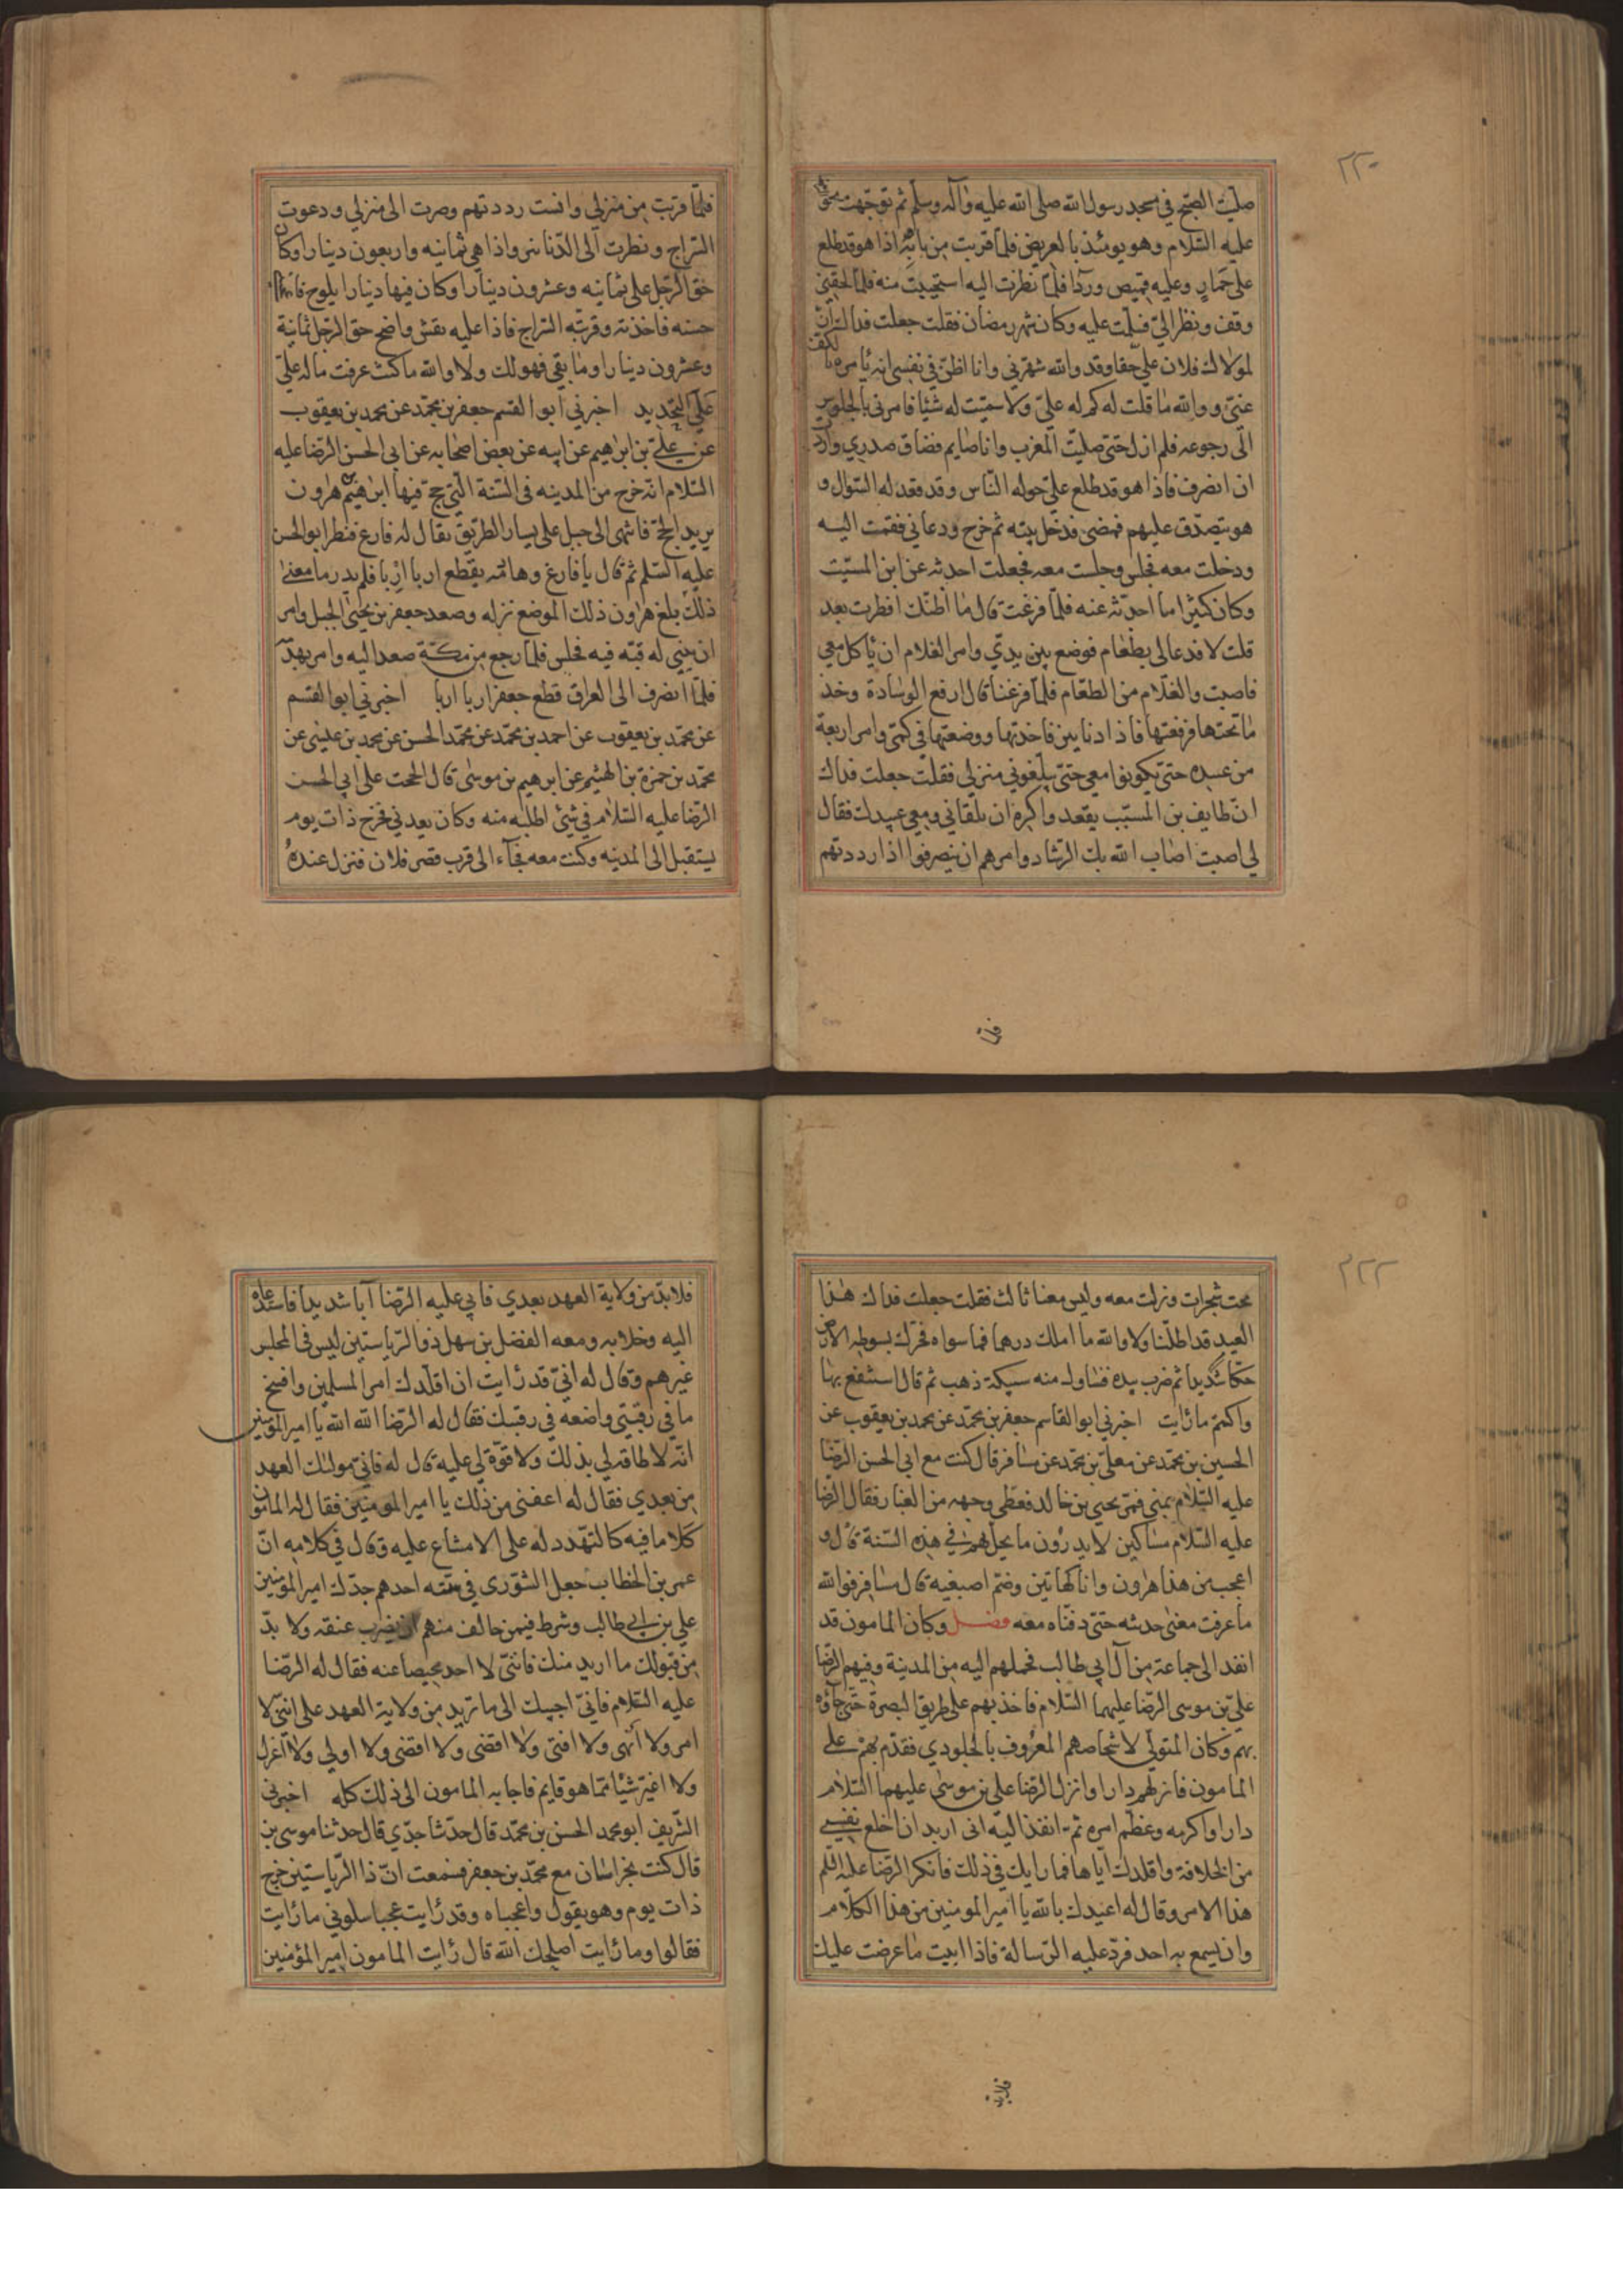 ٢٢٠
صليت الصبح في مسجد رسول الله صلى الله عليه وآله وسلم ثم توجهت نحو
عليه السلام وهو يومئذ بالعريض فلما قربت من بابه اذا هو قد طلع
على حمار وعليه قميص وردا فلما نظرت اليه استحييت منه فلما لحقني
وقف ونظر الي فسلمت عليه وكان شهر رمضان فقلت جعلت فداك ان
لمولاك فلان علي حقا وقد والله شهرني وانا اظن في نفسي انه يامره بالكف
عني و والله ما قلت له كم له علي ولا سميت له شيئا فامرني بالجلوس
الى رجوعه فلم ازل حتى صليت المغرب وانا صايم فضاق صدري واردت
ان انصرف فاذا هو قد طلع علي حوله الناس وقد قعد له السؤال و
هو يتصدق عليهم فمضى فدخل بيته ثم خرج ودعاني فقمت اليه
ودخلت معه فجلس وجلست معه فجعلت احدثه عن ابن المسيب
وكان كثيرا ما احدثه عنه فلما فرغت قال ما اظنك افطرت بعد
قلت لا فدعا لي بطعام فوضع بين يدي وامر الغلام ان ياكل معي
فاصبت والغلام من الطعام فلما فرغنا قال ارفع الوسادة وخذ
ما تحتها فرفعتها فاذا دنانير فاخذتها ووضعتها في كمي وامر اربعة
من عبيده حتى يكونوا معي حتى يبلغوني منزلي فقلت جعلت فداك
ان طايف بن المسيب يقعد واكره ان يلقاني ومعي عبيدك فقال
لي اصبت اصاب الله بك الرشاد وامرهم ان ينصرفوا اذا رددتهم
فلما
فلما قربت من منزلي وانست رددتهم وصرت الى منزلي ودعوت
السراج ونظرت الى الدنانير واذا هي ثمانيه واربعون دينارا وكان
حق الرجل علي ثمانيه وعشرون دينارا وكان فيها دينارا يلوح فاعجبني
حسنه فاخذته وقربته السراج فاذا عليه نقش واضح حق الرجل ثمانية
وعشرون دينارا وما بقي فهو لك ولا والله ما كنت عرفت ما له علي
على التحديد اخبرني ابو القسم جعفر بن محمد عن محمد بن يعقوب
عن علي بن ابرهيم عن ابيه عن بعض اصحابه عن ابي الحسن الرضا عليه
السلام انه خرج من المدينه في السنة التي حج فيها هرون
يريد الحج فانتهى الى جبل على يسار الطريق يقال له فارع فنظر ابو الحسن
عليه السلم ثم قال يا فارغ وهادمه يقطع اربا اربا فلم يدر ما معنى
ذلك بلغ هرون ذلك الموضع نزله وصعد جعفر بن يحيى الجبل وامر
ان يبني له قبه فيه فجلس فلما رجع من مكة صعد اليه وامر بهدمه
فلما انصرف الى العراق قطع جعفر اربا اربا اخبرني ابو القسم
عن محمد بن يعقوب عن احمد بن محمد عن محمد الحسن عن محمد بن عيسى عن
محمد بن حمزة بن الهيثم عن ابرهيم بن موسى قال الححت على ابي الحسن
الرضا عليه السلام في شئ اطلبه منه وكان يعدني فخرج ذات يوم
يستقبل الى المدينه وكنت معه فجآء الى قرب قصر فلان فنزل عنده
٢٢٢
تحت شجرات ونزلت معه وليس معنا ثالث فقلت جعلت فداك هذا
العيد قد اظلنا ولا والله ما املك درهما فما سواه فحرك بسوطه الارض
حكا شديدا ثم ضرب بيده فتناول منه سبيكة ذهب ثم قال استنفع بها
واكتم ما رايت اخبرني ابو القاسم جعفر بن محمد عن محمد بن يعقوب عن
الحسين بن محمد عن معلى بن محمد عن مسافر قال كنت مع ابي الحسن الرضا
عليه السلام بمنى فمر يحيى بن خالد فغطى وجهه من الغبار فقال الرضا
عليه السلام مساكين لا يدرون ما يحل بهم في هذه السنة قال و
اعجب من هذا هرون وانا كهاتين وضم اصبعيه قال مسافر فوالله
ما عرفت معنى حديثه حتى دفناه معه فصل وكان المامون قد
انفذ الى جماعة من آل ابي طالب فحملهم اليه من المدينة وفيهم الرضا
علي بن موسى الرضا عليهما السلام فاخذ بهم على طريق البصرة حتى جاؤه
بهم وكان المتولي لاشخاصهم المعروف بالجلودي فقدم بهم على
المامون فانزلهم دارا وانزل الرضا علي بن موسى عليهما السلام
دارا واكرمه وعظم امره ثم انفذ اليه اني اريد ان اخلع نفسي
من الخلافة واقلدك اياها فما رايك في ذلك فانكر الرضا عليه السلم
هذا الامر وقال له اعيذك بالله يا امير المومنين من هذا الكلام
وان يسمع به احد فرد عليه الرسالة فاذا ابيت ما عرضت عليك
فلابد
فلا بد من ولاية العهد بعدي فابي عليه الرضا ابا شديدا فاستدعاه
اليه وخلا به ومعه الفضل بن سهل ذو الرياستين ليس في المجلس
غيرهم وقال له اني قد رايت ان اقلدك امر المسلمين وافسخ
ما في رقبتي واضعه في رقبتك فقال له الرضا الله الله يا امير المؤمنين
انه لا طاقه لي بذلك ولا قوة لي عليه قال له فاني موليك العهد
من بعدي فقال له اعفني من ذلك يا امير المومنين فقال له المامون
كلاما فيه كالتهدد له على الامتناع عليه وقال في كلامه ان
عمر بن الخطاب جعل الشورى في ستة احدهم جدك امير المؤمنين
علي بن ابي طالب وشرط فيمن خالف منهم ان يضرب عنقه ولا بد
من قبولك ما اريد منك فانني لا اجد محيصا عنه فقال له الرضا
عليه السلام فاني اجيبك الى ما تريد من ولاية العهد على انني لا
امر ولا انهى ولا افتى ولا اقضى ولا اقضى ولا اولي ولا اعزل
ولا اغير شيئا مما هو قايم فاجابه المامون الى ذلك كله اخبرني
الشريف ابو محمد الحسن بن محمد قال حدثنا جدي قال حدثنا موسى بن
قال كنت بخراسان مع محمد بن جعفر فسمعت ان ذا الرياستين خرج
ذات يوم وهو يقول واعجباه وقد رايت عجبا سلوني ما رايت
فقالوا وما رايت اصلحك الله قال رايت المامون امير المؤمنين